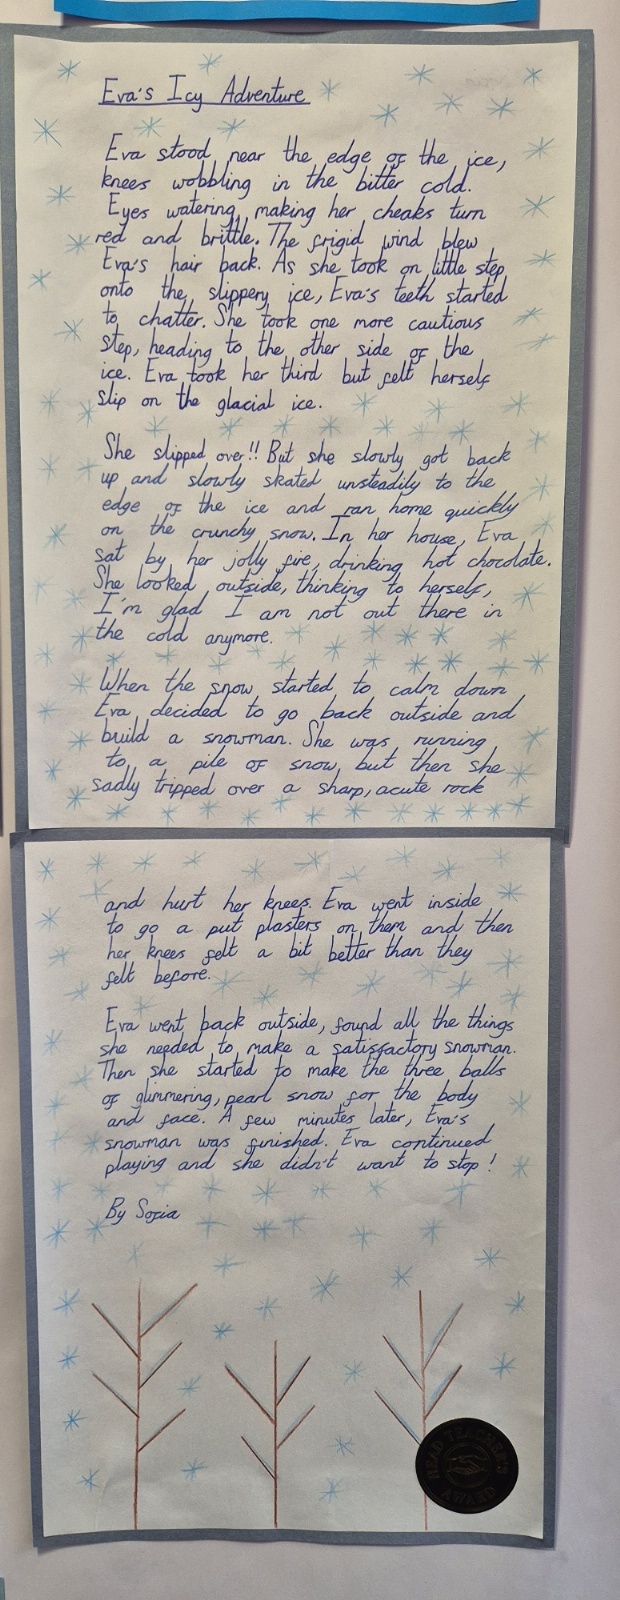 Eva's Icy Adventure
Eva stood near the edge of the ice,
knees wobbling in the bitter cold.
Eyes watering, making her cheaks turn
red and brittle. The frigid wind blew
Eva's hair back. As she took on little step
onto the slippery ice, Eva's teeth started
to chatter. She took one more cautious
step, heading to the other side of the
ice. Eva took her third but felt herself
slip on the glacial ice.
She slipped over!! But she slowly got back
up and slowly skated unsteadily to the
edge of the ice and ran home quickly
on the crunchy snow. In her house, Eva
sat by her jolly fire, drinking hot chocolate.
She looked outside, thinking to herself,
I'm glad I am not out there in
the cold anymore.
When the snow started to calm down
Eva decided to go back outside and
build a snowman. She was running
to a pile of snow, but then she
sadly tripped over a sharp, acute rock
and hurt her knees. Eva went inside
to go a put plasters on them and then
her knees felt a bit better than they
felt before.
Eva went back outside, found all the things
she needed to make a satisfactory snowman.
Then she started to make the three balls
of glimmering, pearl snow for the body
and face. A few minutes later, Eva's
snowman was finished. Eva continued
playing and she didn't want to stop!
By Sofia
HEAD TEACHER'S
AWARD